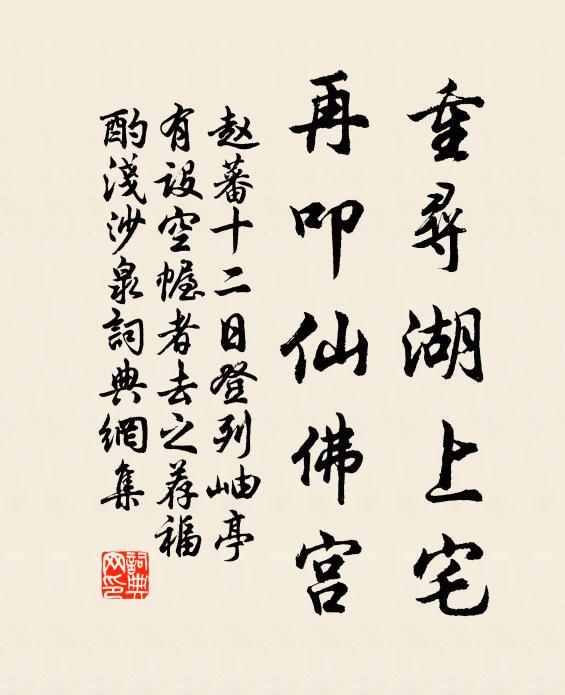 重尋湖上宅
再叩仙佛宫
赵蕃十二日登列岫亭
有设空幄者去之荐福
酌淺沙泉詞典網集
詞典网印